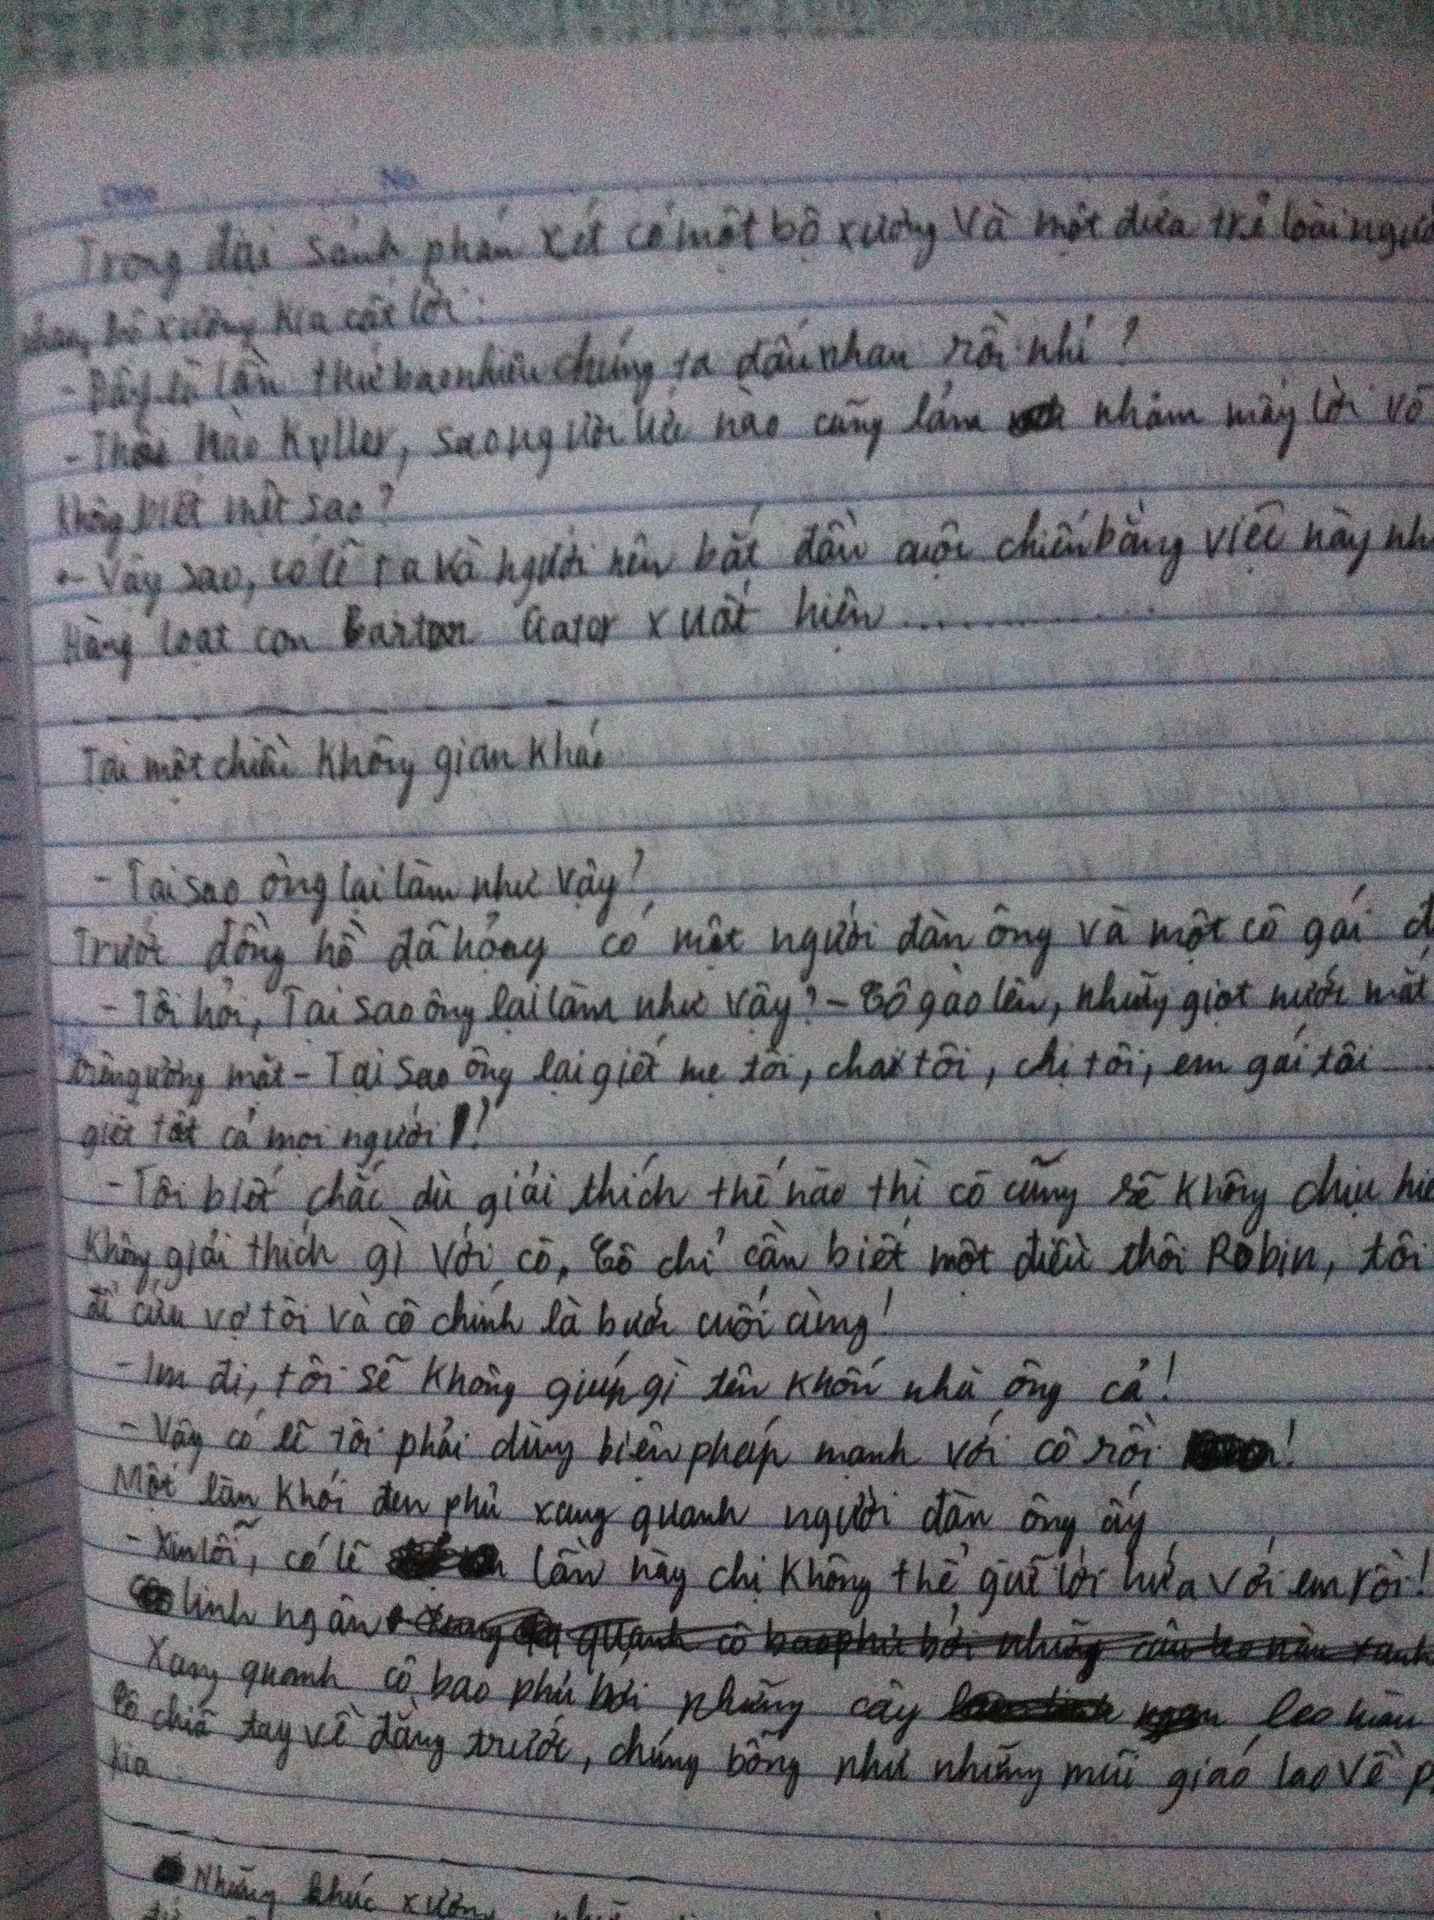 Date No
Trong đại sảnh phán xét có một bộ xương và một đứa trẻ loài ngườ
bộ xương kia cất lời:
- Đây là lần thứ bao nhiêu chúng ta đấu nhau rồi nhỉ?
- Thôi nào Kyller, sao ngươi lúc nào cũng lảm nhảm mấy lời vô
không biết mệt sao?
- Vậy sao, có lẽ ta và ngươi nên bắt đầu cuộc chiến bằng việc này nh
Hàng loạt con Barton Gator xuất hiện ..............
Tại một chiều không gian khác
- Tại sao ông lại làm như vậy?
Trước đồng hồ đã hỏng có một người đàn ông và một cô gái đ
- Tôi hỏi, Tại sao ông lại làm như vậy? - Cô gào lên, những giọt nước mắt
trên gương mặt - Tại sao ông lại giết mẹ tôi, cha tôi, chị tôi, em gái tôi ......
giết tất cả mọi người!?
- Tôi biết chắc dù giải thích thế nào thì cô cũng sẽ không chịu hiể
không giải thích gì với cô, Cô chỉ cần biết một điều thôi Robin, tôi
để cứu vợ tôi và cô chính là bước cuối cùng!
- Im đi, tôi sẽ không giúp gì tên khốn như ông cả!
- Vậy có lẽ tôi phải dùng biện pháp mạnh với cô rồi!
Một làn khói đen phủ xang quanh người đàn ông ấy
- Xin lỗi, có lẽ lần này chị không thể giữ lời hứa với em rồi!
linh ngân
Xang quanh cô bao phủ bởi những cây leo màu
Cô chĩa tay về đằng trước, chúng bỗng như những mũi giáo lao về p
kia
Những khúc xương